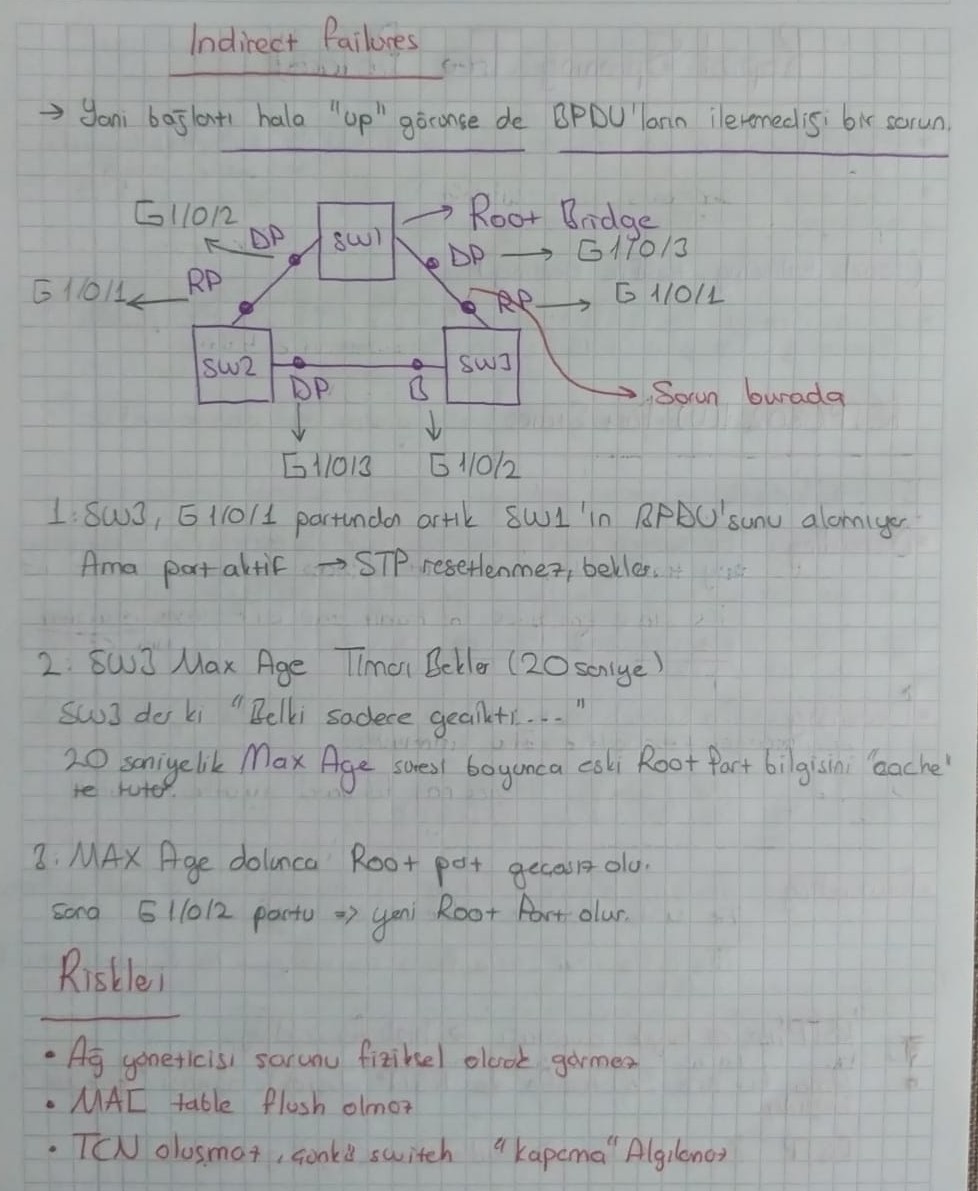 Indirect Failures
→ Yani bağlantı hala "up" görünse de BPDU'ların ilerlemediği bir sorun.
G1/0/2 DP SW1 → Root Bridge
DP → G1/0/3
G1/0/1 ← RP
RP → G 1/0/1
SW2 DP B SW3
→ Sorun burada
G1/0/3 G1/0/2
1. SW3, G1/0/1 portundan artık SW1'in BPDU'sunu alamıyor.
Ama port aktif → STP resetlenmez, bekler.
2. SW3 Max Age Timer Bekler (20 saniye)
SW3 der ki "Belki sadece gecikti...."
20 saniyelik Max Age süresi boyunca eski Root Port bilgisini 'cache'
te tutar.
3. MAX Age dolunca Root port geçersiz olur.
sonra G1/0/2 portu => yeni Root Port olur.
Riskler
• Ağ yöneticisi sorunu fiziksel olarak görmez
• MAC table flush olmaz
• TCN oluşmaz, çünkü switch "kapama" Algılamaz